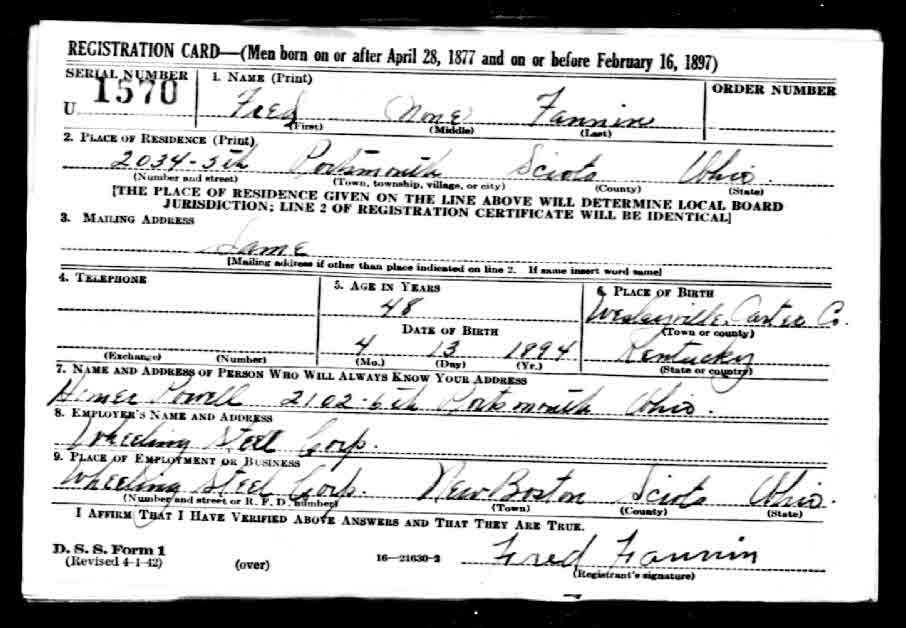 REGISTRATION CARD—(Men born on or after April 28, 1877 and on or before February 16, 1897)
SERIAL NUMBER
1. NAME (Print)
ORDER NUMBER
U 1570
Fred None Fannin
(First) (Middle) (Last)
2. PLACE OF RESIDENCE (Print)
2034-5th Portsmouth Scioto Ohio.
(Number and street) (Town, township, village, or city) (County) (State)
[THE PLACE OF RESIDENCE GIVEN ON THE LINE ABOVE WILL DETERMINE LOCAL BOARD
JURISDICTION; LINE 2 OF REGISTRATION CERTIFICATE WILL BE IDENTICAL]
3. MAILING ADDRESS
Same
[Mailing address if other than place indicated on line 2. If same insert word same]
4. TELEPHONE
5. AGE IN YEARS
6. PLACE OF BIRTH
48
Wesleyville, Carter Co.
(Town or county)
DATE OF BIRTH
4 13 1894
Kentucky
(Exchange) (Number)
(Mo.) (Day) (Yr.)
(State or country)
7. NAME AND ADDRESS OF PERSON WHO WILL ALWAYS KNOW YOUR ADDRESS
Homer Powell 2102-6th Portsmouth Ohio.
8. EMPLOYER'S NAME AND ADDRESS
Wheeling Steel Corp.
9. PLACE OF EMPLOYMENT OR BUSINESS
Wheeling Steel Corp. New Boston Scioto Ohio.
(Number and street or R. F. D. number) (Town) (County) (State)
I AFFIRM THAT I HAVE VERIFIED ABOVE ANSWERS AND THAT THEY ARE TRUE.
D. S. S. Form 1
(Revised 4-1-42)
(over)
16—21630-2
Fred Fannin
(Registrant's signature)